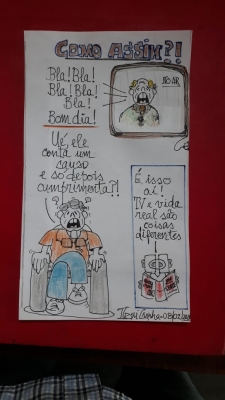 COMO ASSIM?!
Bla! Bla!
Bla! Bla!
Bla!
Bom dia!
NO AR
Ué, ele
conta um
causo
e só depois
cumprimenta?!
É isso
aí!
TV e vida
real são
coisas
diferentes